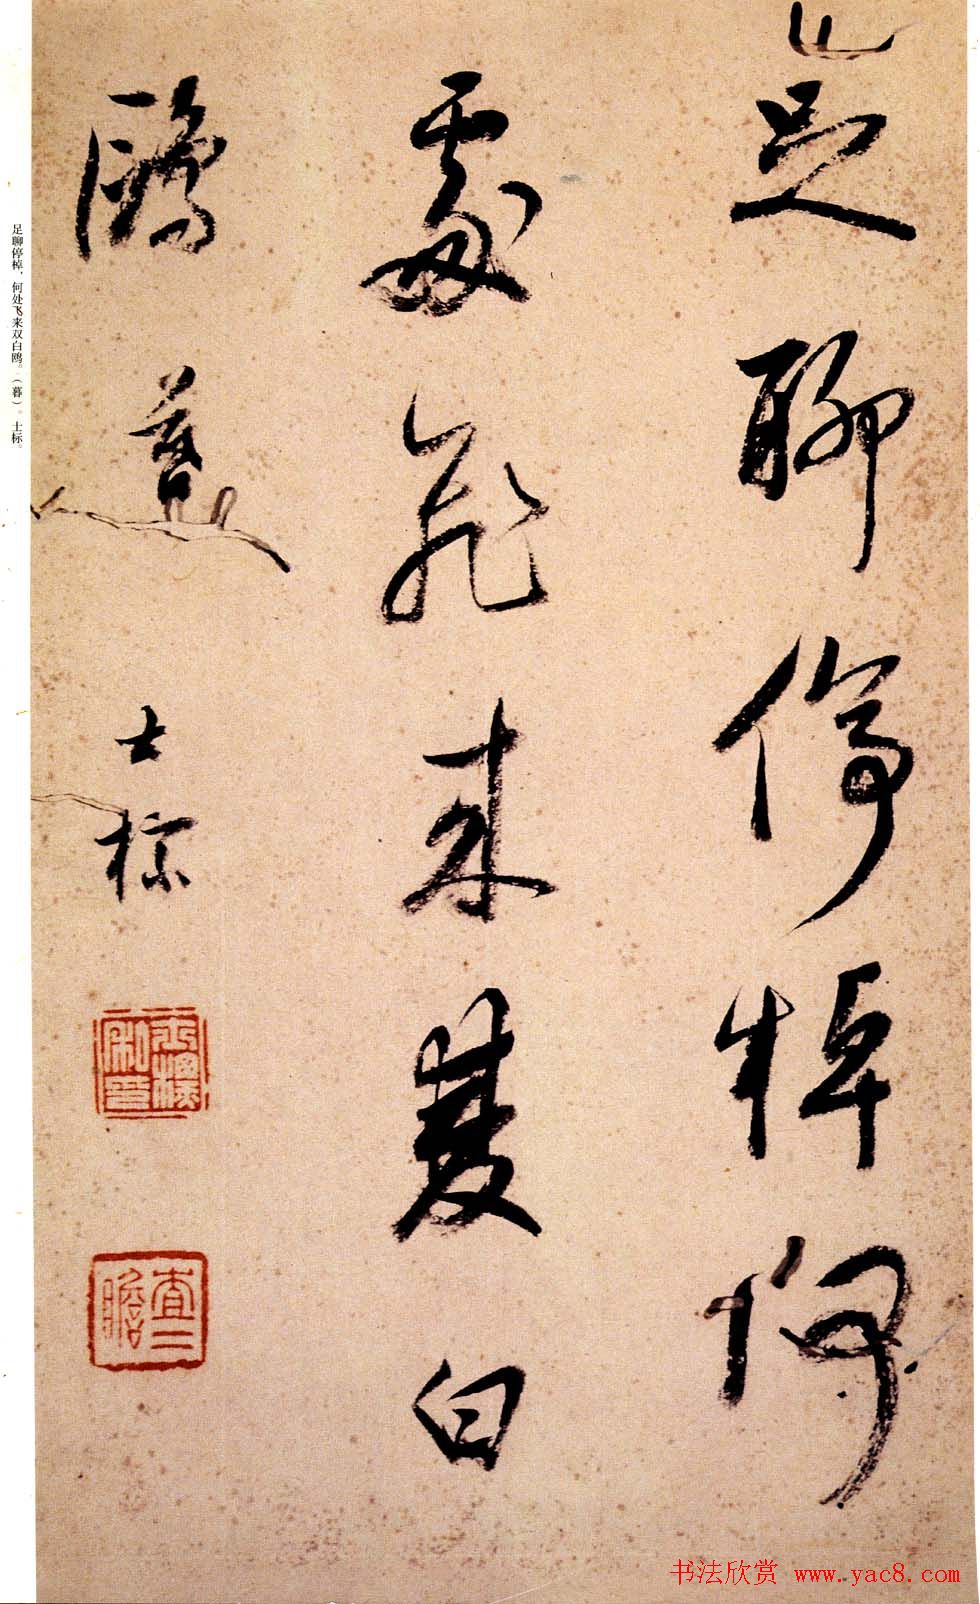 足聊停棹何
處飛來雙白
鷗 暮
士標
士標私印
查二瞻
足聊停棹，何处飞来双白鸥。（暮）。士标。
书法欣赏 www.yac8.com